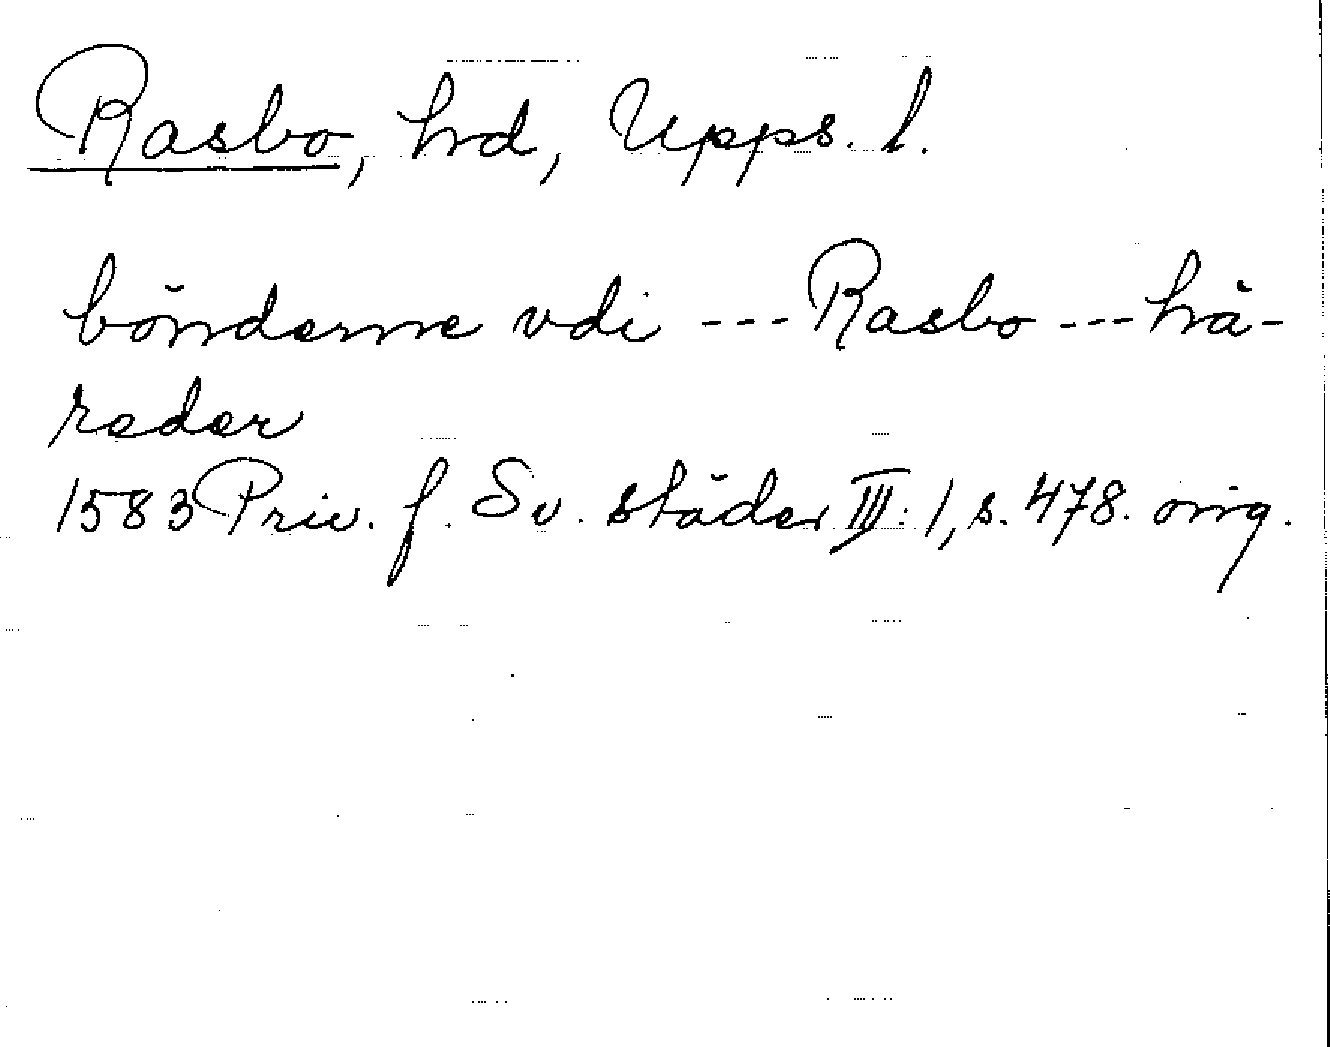 Rasbo, hrd, Upps. l.
bönderne vdi --- Rasbo --- hä-
reder
1583 Priv. f. Sv. städer III: 1, s. 478. orig.